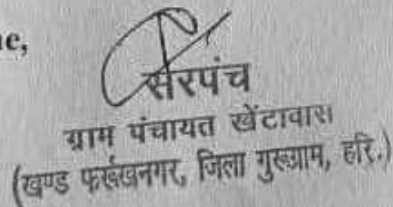 ne,
सरपंच
ग्राम पंचायत खेंटावास
(खण्ड फर्रूखनगर, जिला गुरूग्राम, हरि.)